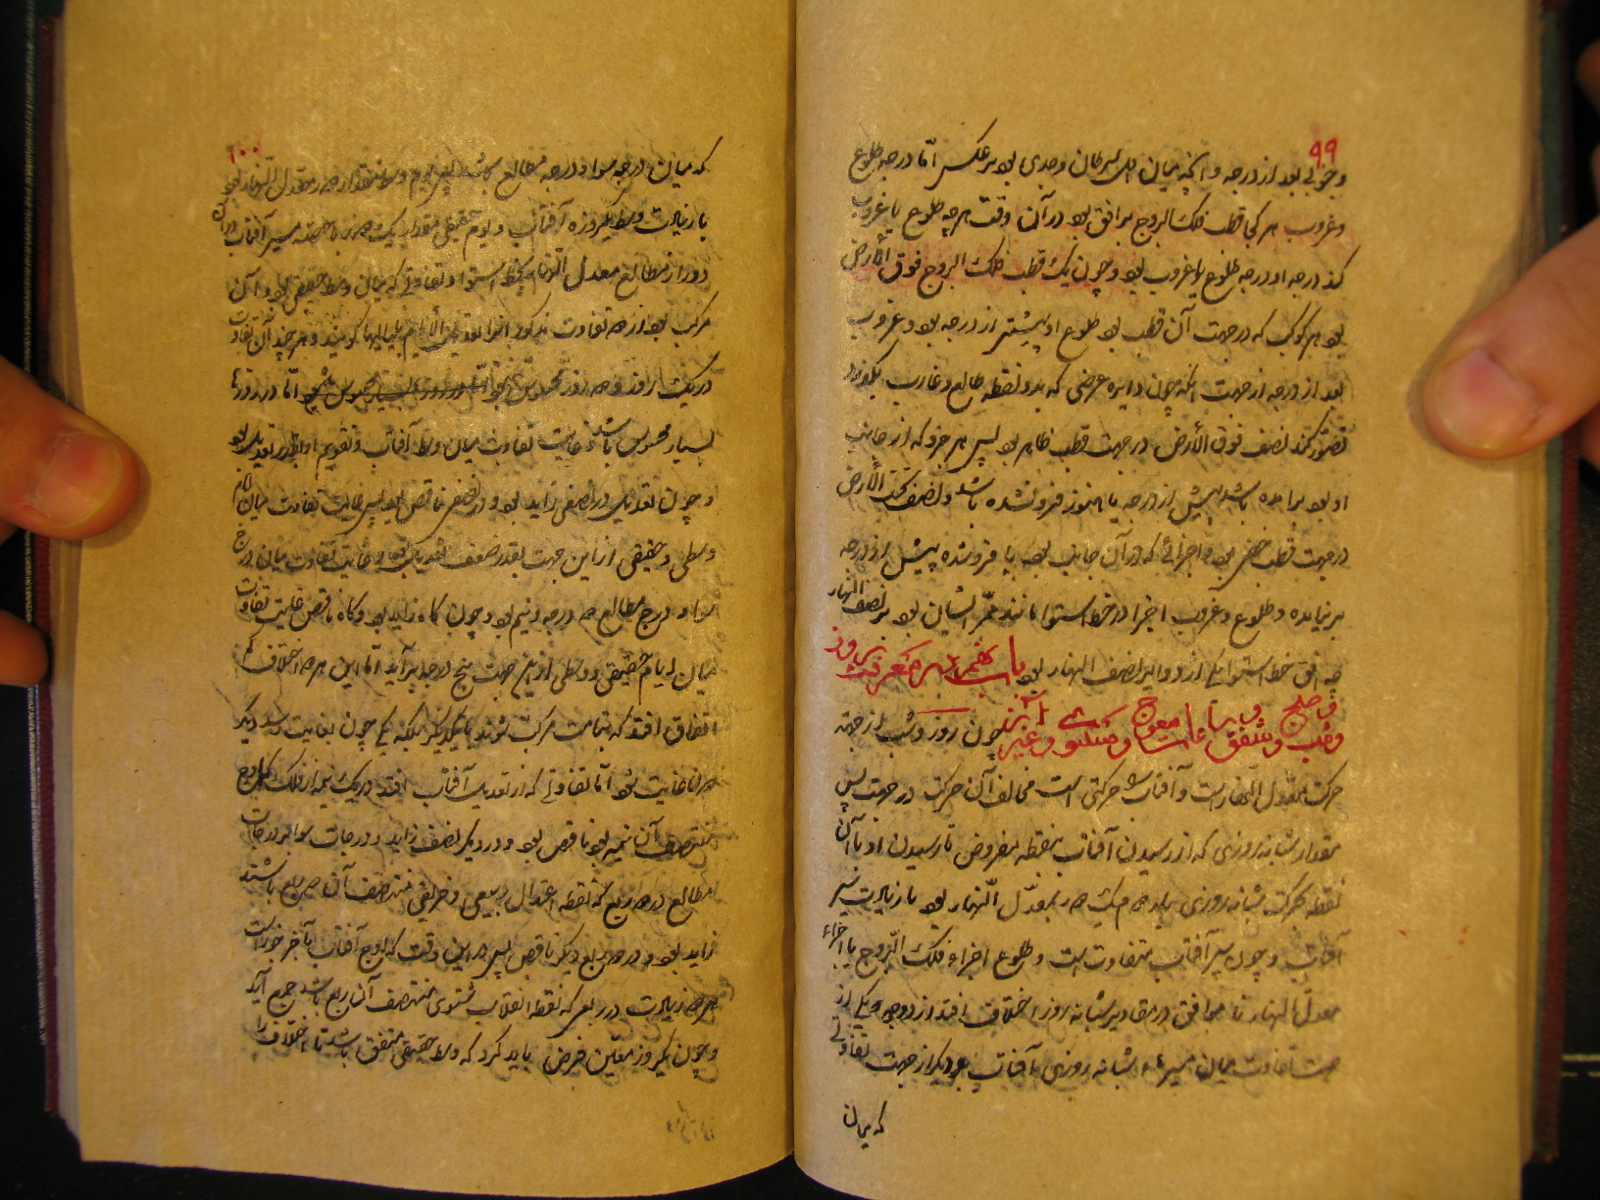 ۹۹
وجوبی بعد از درجه و آنچه میان اول سرطان وجدی بود برعکس امّا درجه طلوع
وغروب هر کجا قطب فلک البروج بر افق بود در آن وقت هر چه طلوع یا غروب
کند درجه او درجه طلوع یا غروب بود وچون یک قطب فلک البروج فوق الأرض
بود هر کوکب که در جهت آن قطب بود طلوع او پیشتر از درجه بود وغروب
بعد از درجه از جهت آنکه چون دایره عرضی که بدو نقطه طالع وغارب بگذرد
تصور کنند نصف فوق الأرض در جهت قطب ظاهر بود پس هر جزو که از جانب
او بود برآمده باشد پیش از درجه یا هنوز فرو نشده باشد ونصف تحت الأرض
در جهت قطب خفی بود واجزائی که در آن جانب بود یا فرو شده پیش از درجه
بر نیامده وطلوع وغروب اجزا در خط استوا مانند ممرّ ایشان بود بر نصف النهار
چه افق خط استوا یکی از دوایر نصف النهار بود باب نهم در معرفت روز
وشب وشفق وصبح وساعات معوج ومستوی وغیر آن چون روز وشب از جهت
حرکت معدل النهار است وآفتاب را حرکتی است مخالف آن حرکت در جهت پس
مقدار شبانه روزی که از رسیدن آفتاب بنقطه مفروض تا رسیدن او با آن
نقطه بحرکت شبانه روزی باشد هم یک دور معدّل النهار بود با زیادت سیر
آفتاب وچون سیر آفتاب متفاوت است وطلوع اجزاء فلک البروج با اجزاء
معدل النهار نا موافق در مقادیر شبانه روز اختلاف افتد از دو وجه یکی از
جهت تفاوت میان مسیرهاء شبانه روزی آفتاب ودیگر از جهت تفاوتی
که میان
۱۰۰
که میان درجه سوا ودرجه مطالع باشد پس یوم وسط مقدار دور معدل النهار بود
با زیادت وسط یکروزه آفتاب ویوم حقیقی مقدار یک دور با حصه مسیر آفتاب
دور از مطالع معدل النهار بخط استوا وتفاوتی که میان وسط حقیقی بود از آن
مرکب بود از دو تفاوت مذکور آنرا تعدیل الأیام بلیالیها گویند وهر چند آن تفاوت
در یک روز ودو روز محسوس نبود امّا در روزها
بسیار محسوس باشد وغایت تفاوت میان وسط آفتاب وتقویم او بقدر تعدیل بود
وچون تعدیل در نصفی زاید بود ودر نصفی ناقص بود پس غایت تفاوت میان ایام
وسطی وحقیقی از این جهت بقدر ضعف تعدیل بود وغایت تفاوت میان درج
سوا ودرج مطالع دو درجه ونیم بود وچون گاه زاید بود وگاه ناقص غایت تفاوت
میان ایام حقیقی ووسطی از این جهت پنج درجه برآید امّا این هر دو اختلاف کم
اتفاق افتد که بتمامت مرکب شوند با یکدیگر بلکه یکی چون بغایت رسد دیگر
در آن غایت نبود امّا تفاوتی که از تعدیل آفتاب افتد در یک نیمه از فلک که اوج
منتصف آن نیمه بود ناقص بود ودر دیگر نصف زاید ودر درجات سوا بر درجات
مطالع در دو ربع که نقطه اعتدال ربیعی وخریفی منتصف آن دو ربع باشند
زاید بود ودر دو ربع دیگر ناقص پس در این وقت که اوج آفتاب بآخر جوزاست
هر دو زیادت در ربعی که نقطه انقلاب شتوی منتصف آن ربع باشد جمع آید
وچون یکروز معین فرض باید کرد که وسط حقیقی متفق باشد تا اختلاف را